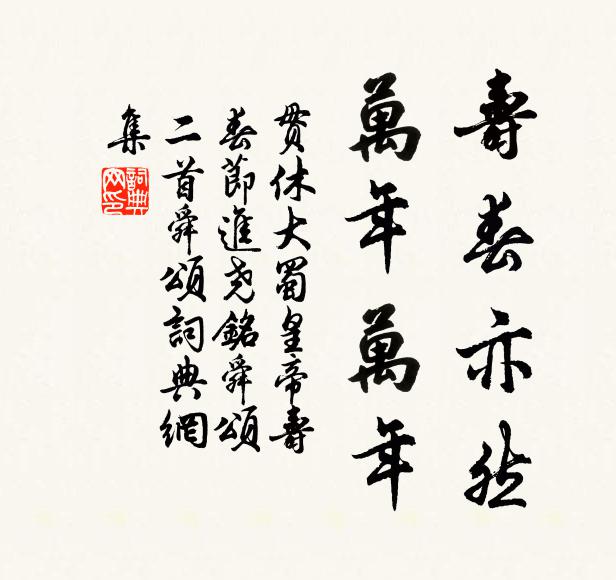 壽春亦然
萬年萬年
貫休大蜀皇帝壽
春節進堯銘舜頌
二首舜頌詞典網
集
詞典網印